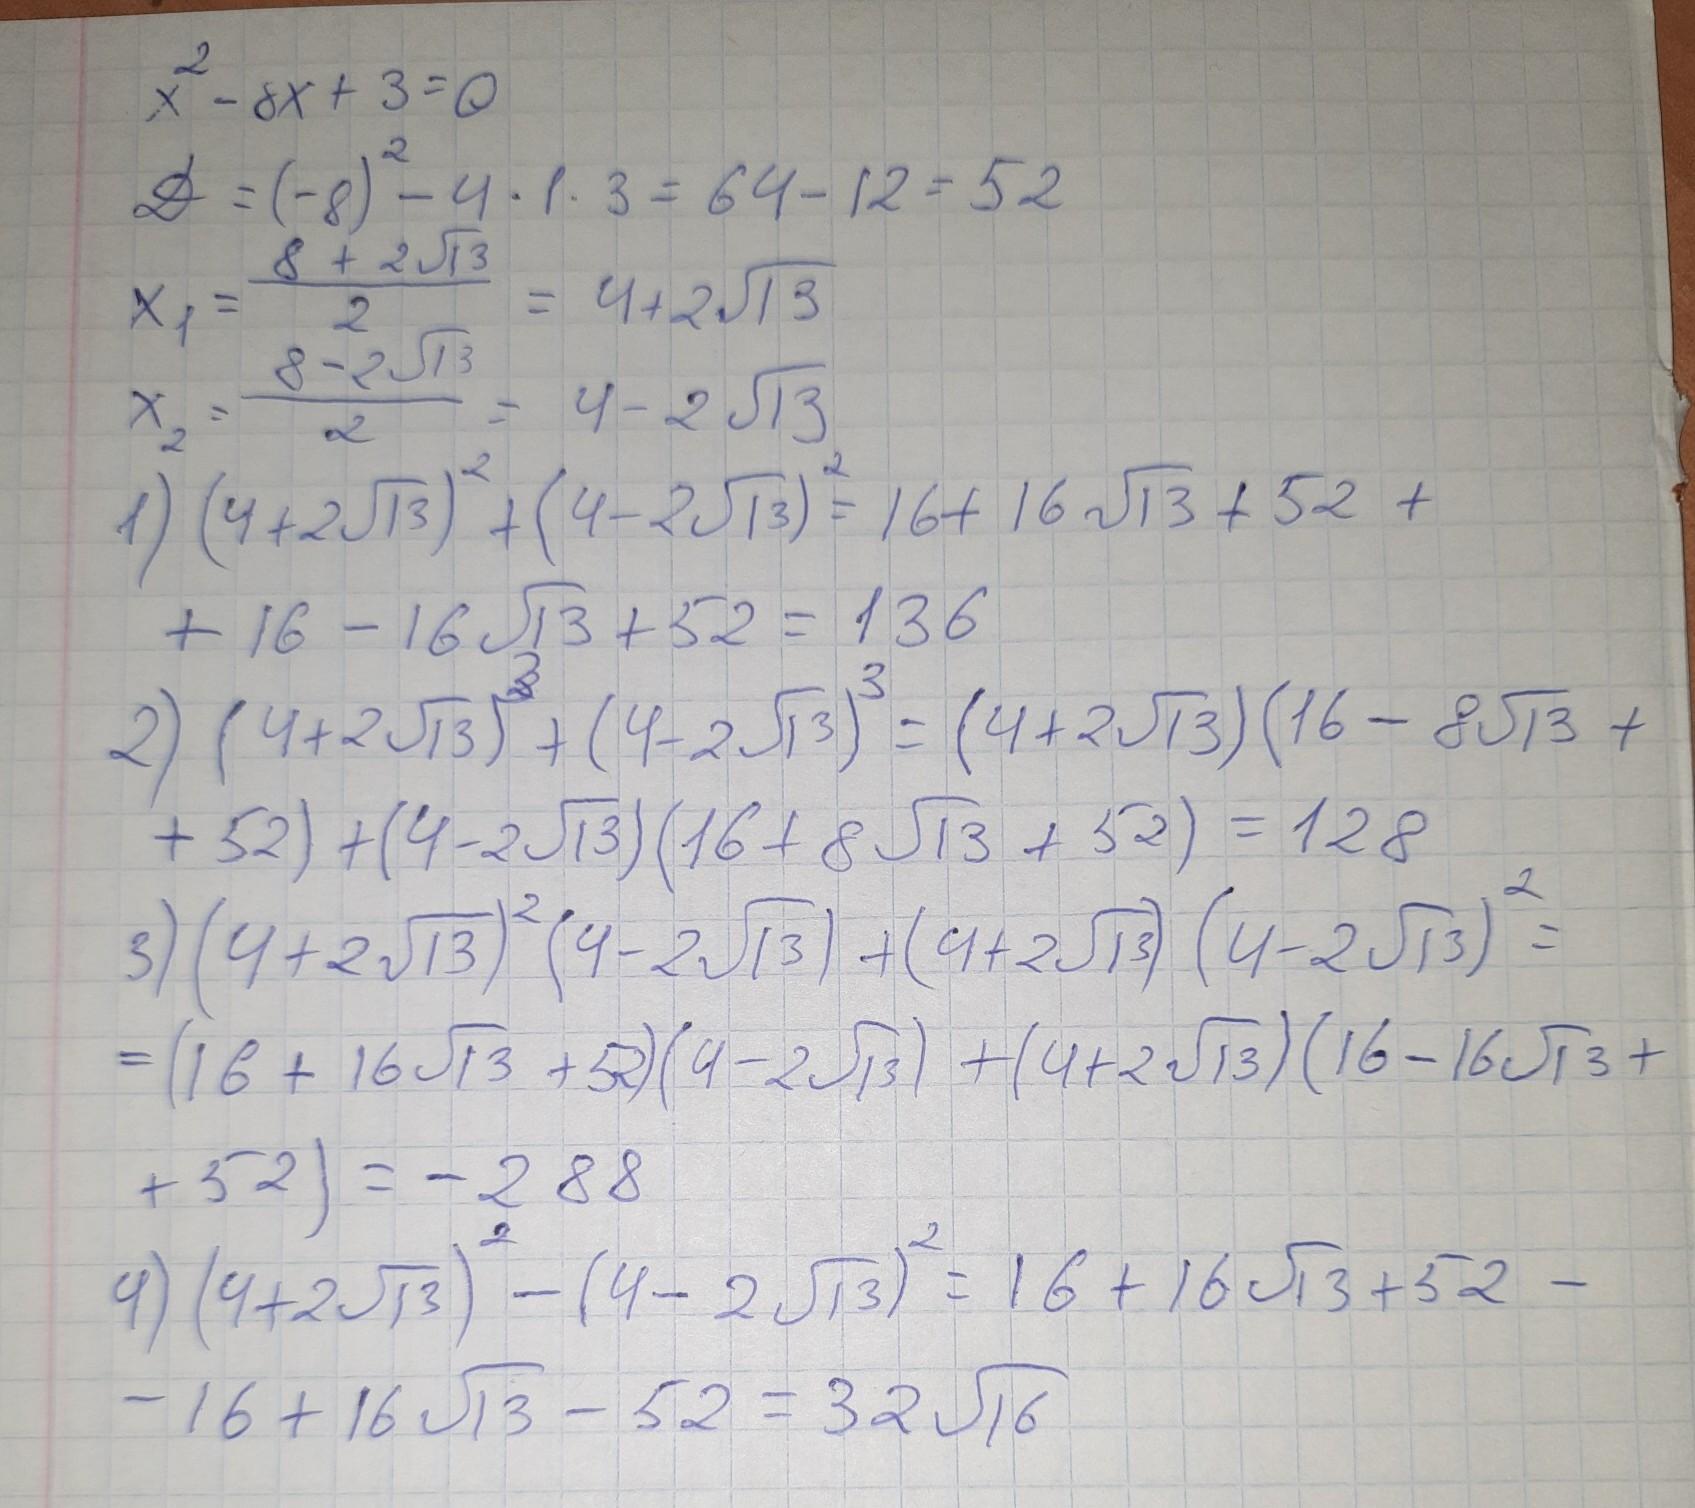 x² - 8x + 3 = 0
D = (-8)² - 4 · 1 · 3 = 64 - 12 = 52
x₁ = (8 + 2√13)/2 = 4 + 2√13
x₂ = (8 - 2√13)/2 = 4 - 2√13
1) (4 + 2√13)² + (4 - 2√13)² = 16 + 16√13 + 52 +
+ 16 - 16√13 + 52 = 136
2) (4 + 2√13)³ + (4 - 2√13)³ = (4 + 2√13)(16 - 8√13 +
+ 52) + (4 - 2√13)(16 + 8√13 + 52) = 128
3) (4 + 2√13)² (4 - 2√13) + (4 + 2√13) (4 - 2√13)² =
= (16 + 16√13 + 52)(4 - 2√13) + (4 + 2√13)(16 - 16√13 +
+ 52) = - 288
4) (4 + 2√13)² - (4 - 2√13)² = 16 + 16√13 + 52 -
- 16 + 16√13 - 52 = 32√16